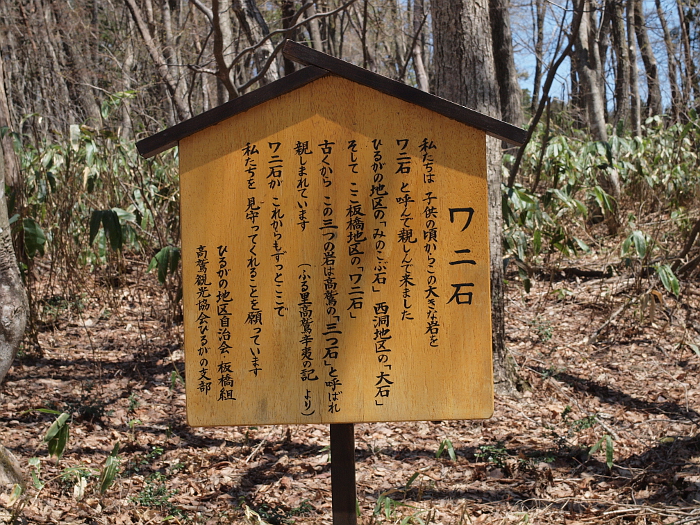 ワニ石
私たちは 子供の頃からこの大きな岩を
ワニ石 と呼んで親しんで来ました
ひるがの地区の「みのこぶ石」 西洞地区の「大石」
そして ここ板橋地区の「ワニ石」
古くから この三つの岩は高鷲の「三つ石」と呼ばれ
親しまれています
（ふる里高鷲辛夷の記 より）
ワニ石が これからもずっとここで
私たちを 見守ってくれることを願っています
ひるがの地区自治会・板橋組
高鷲観光協会ひるがの支部